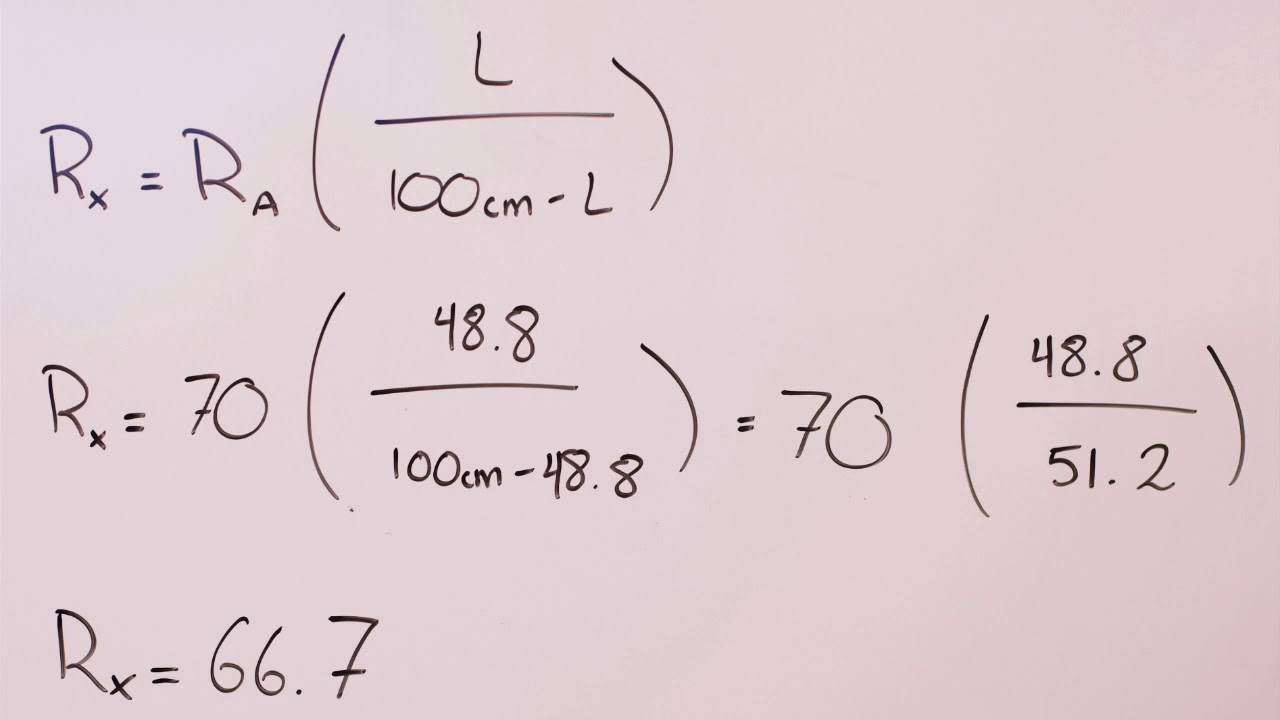 Rx = RA ( L / 100cm - L )
Rx = 70 ( 48.8 / 100cm - 48.8 ) = 70 ( 48.8 / 51.2 )
Rx = 66.7